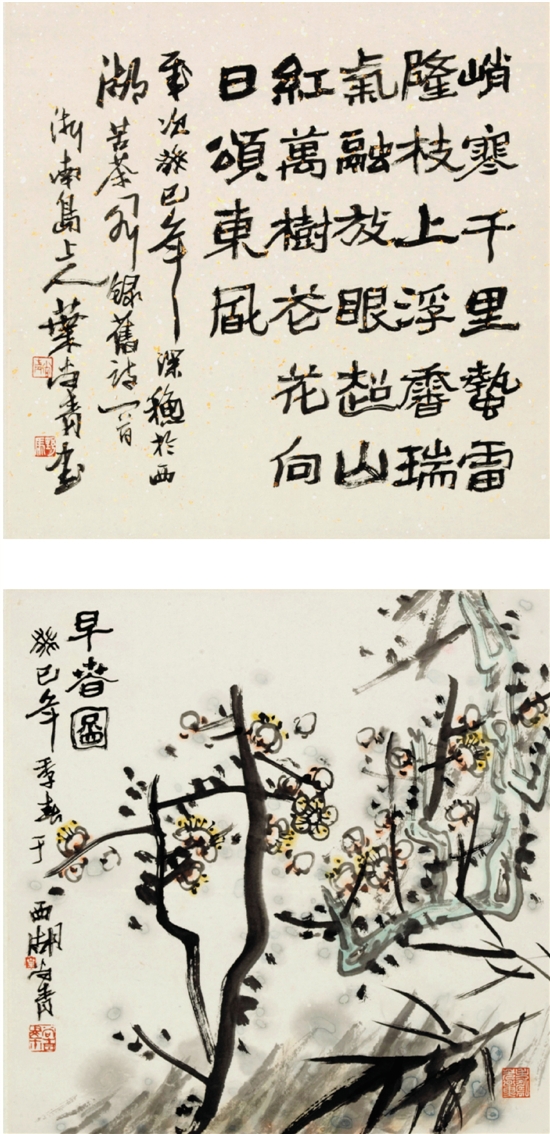 峭寒千里蟄雷
隆枝上浮瑞
氣融放眼超山
紅萬樹芲花向
日頌東風
歲次癸巳年之深穐於西
湖苦茶錄舊詩一首
浙南島上人葉尚青書
早春圖
癸巳年季春于
西湖尚青